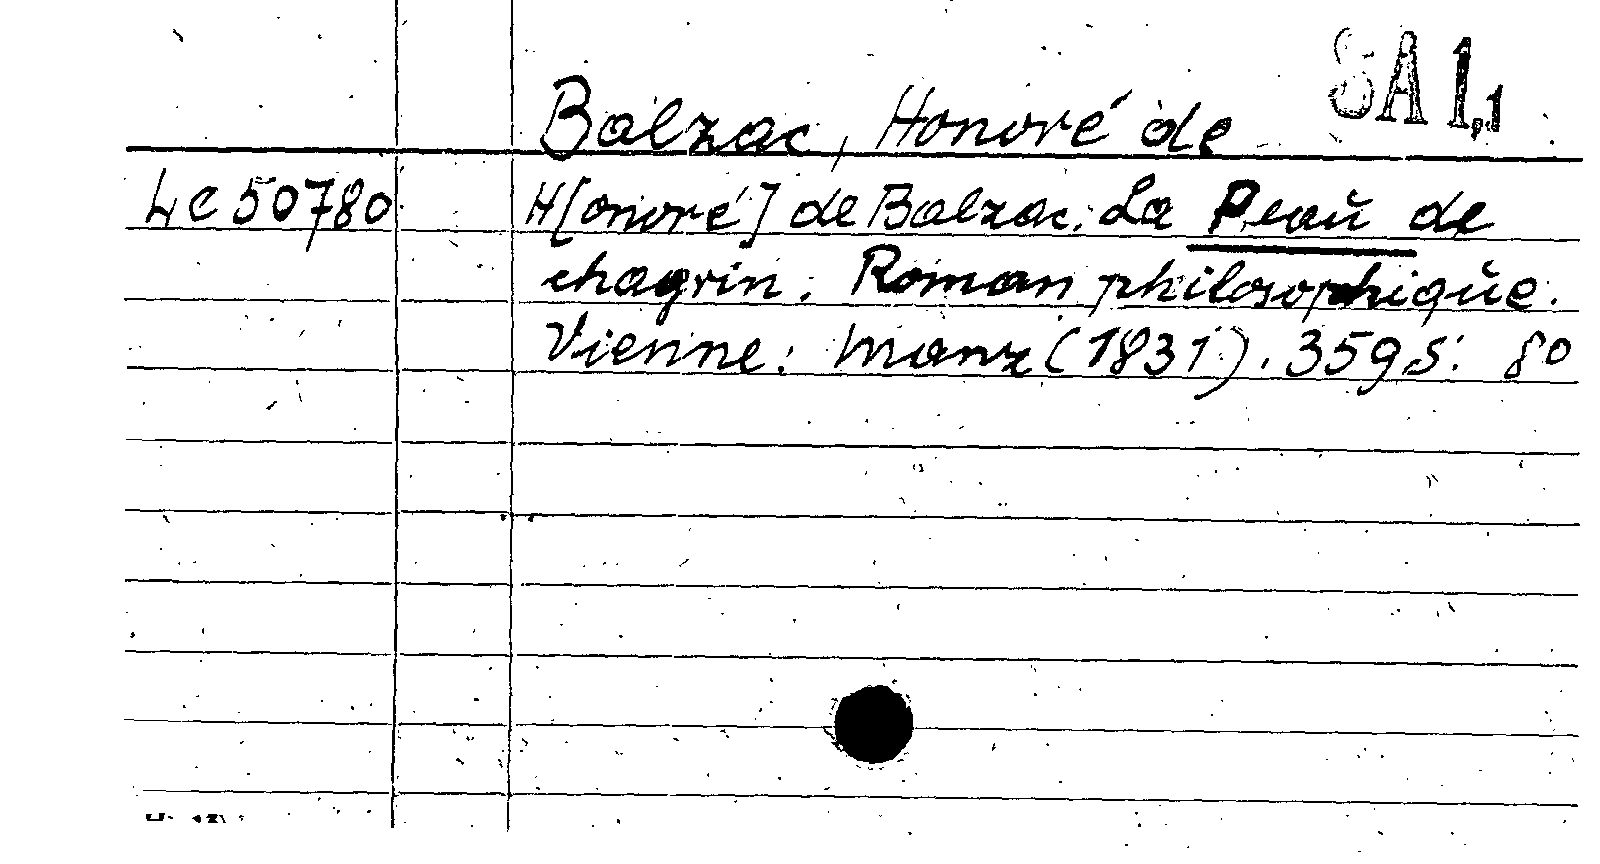 SA 1,1
Balzac, Honoré de
Lc 50780 H[onoré] de Balzac: La Peau de
chagrin. Roman philosophique.
Vienne: Manz (1831). 359 S. 8°